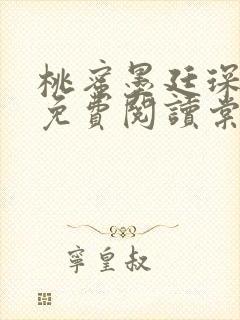 桃蜜墨廷深
免費閱讀棠
寧皇叔